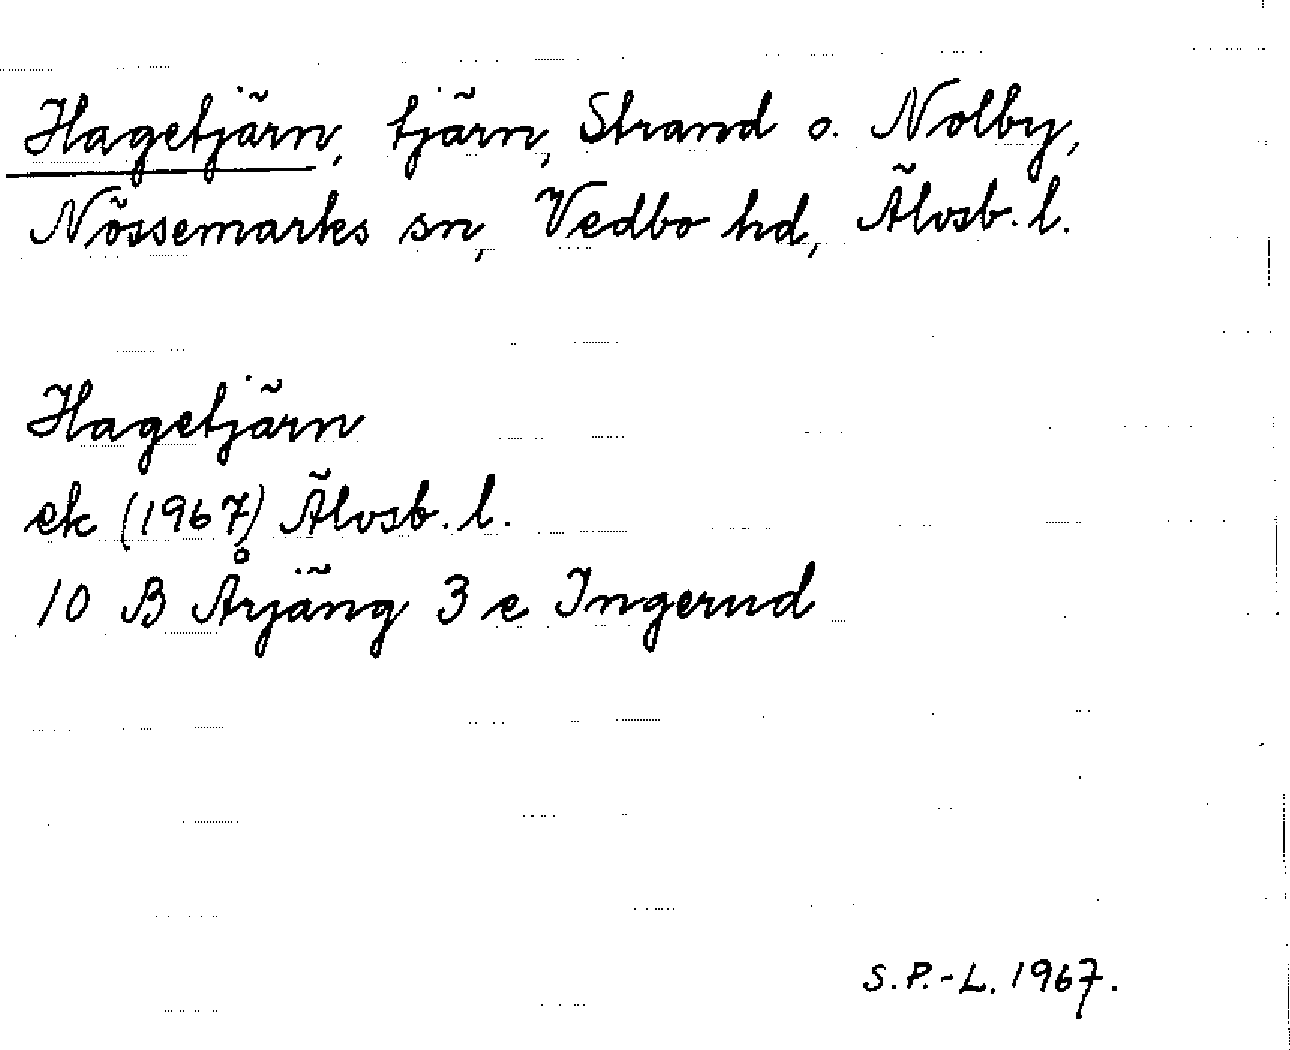 Hagetjärn, tjärn, Strand o. Nolby,
Nössemarks sn, Vedbo hd, Älvsb. l.
Hagetjärn
ek (1967) Älvsb. l.
10 B Årjäng 3 e Ingerud
S.P.-L. 1967.